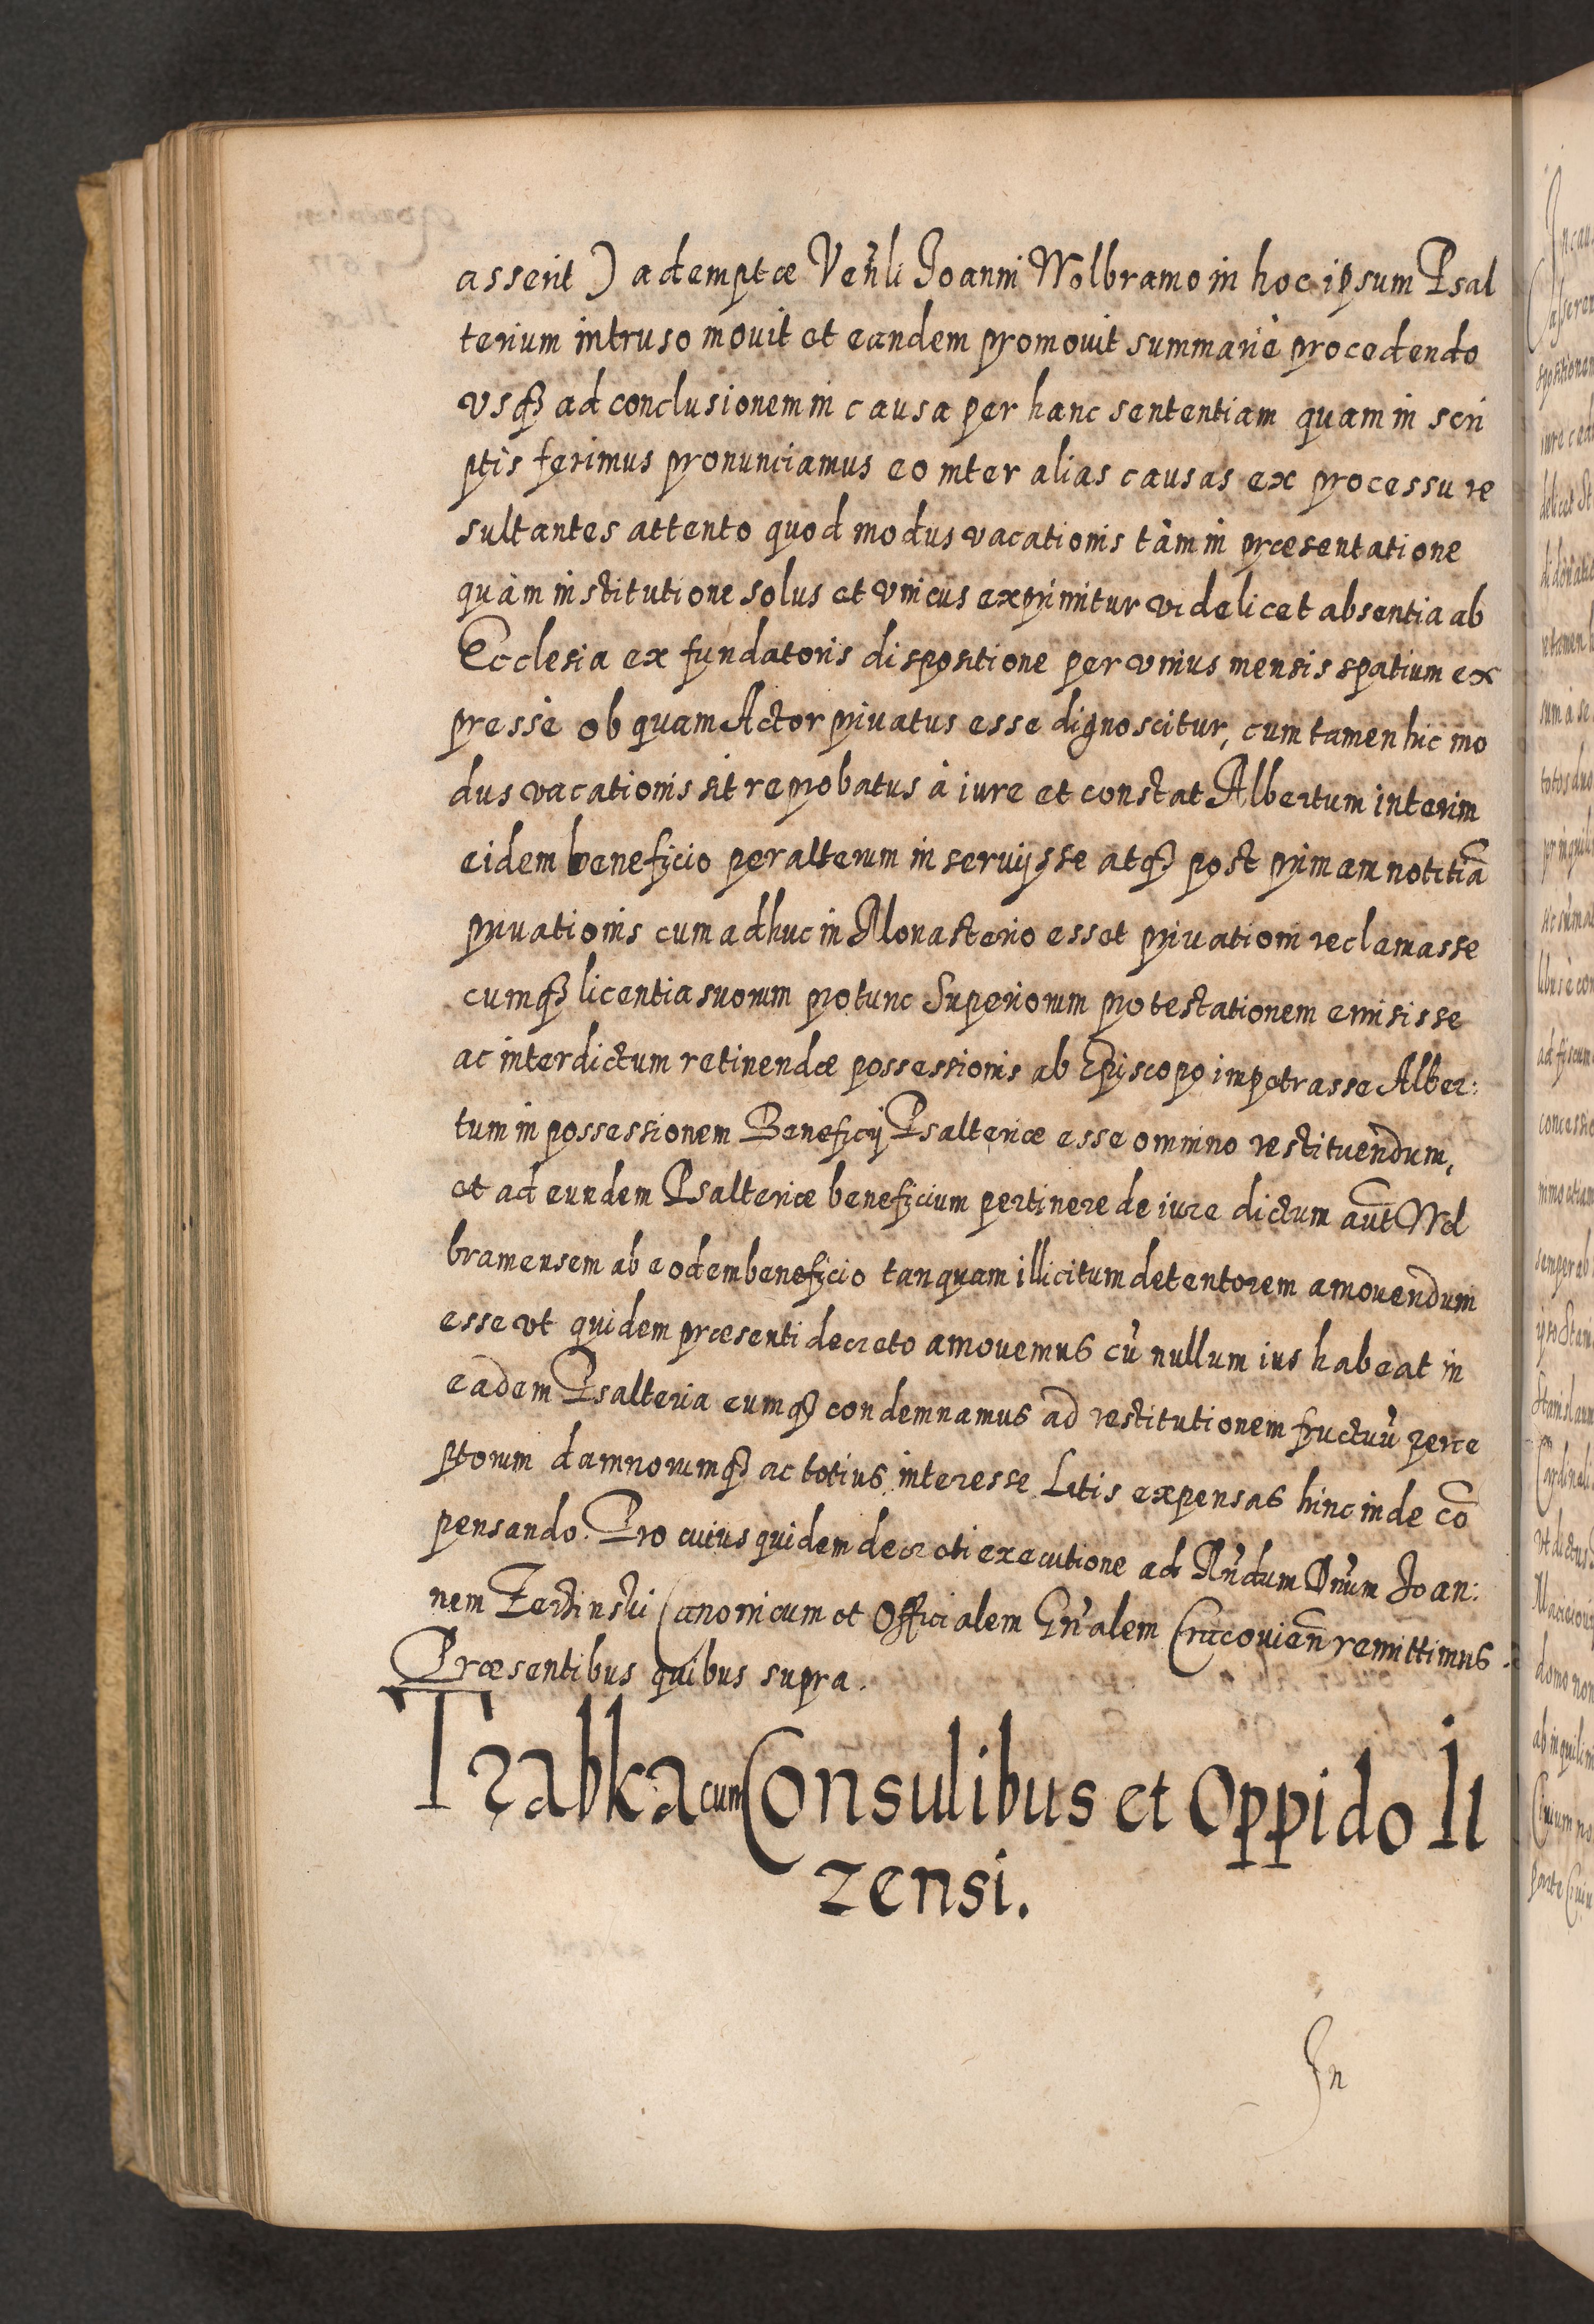 asserit) ademptæ Ven̉li Joanni Wolbramo in hoc ipsum Psal
terium intruso mouit et eandem promouit summariè procedendo
vsq₃ ad conclusionem in causa per hanc sententiam quam in scri
ptis ferimus pronunciamus eo inter alias causas ex processu re
sultantes attento quod modus vacationis tàm in præsentatione
quàm institutione solus et vnicus exprimitur videlicet absentia ab
Ecclesia ex fundatoris dispositione per vnius mensis spatium ex
pressè ob quam Actor priuatus esse dignoscitur, cum tamen hic mo
dus vacationis sit reprobatus à iure et constat Albertum interim
eidem beneficio per alterum inseruijsse atq₃ post primam notitiā
priuationis cum adhuc in Monasterio esset priuationi reclamasse
cumq₃ licentia suorum protunc Superiorum protestationem emisisse
ac interdictum retinendæ possessionis ab Episcopo impetrasse Alber:
tum in possessionem Beneficij Psalteriæ esse omnino restituendum,
et ad eundem Psalteriæ beneficium pertinere de iure dictum aūt Wol
bramensem ab eodem beneficio tanquam illicitum detentorem amouendum
esse vt quidem præsenti decreto amouemus cū nullum ius habeat in
eadem Psalteria eumq₃ condemnamus ad restitutionem fructuū perce
ptorum damnorumq₃ ac totius interesse Litis expensas hinc inde cō
pensando. Pro cuius quidem decreti executione ad Rn̄dum Dn̄um Joan:
nem Canonicum et Officialem Gn̄alem Cracouien̄ remittimus.
Præsentibus quibus supra.
Trabka cum Consulibus et Oppido Il
zensi.
In